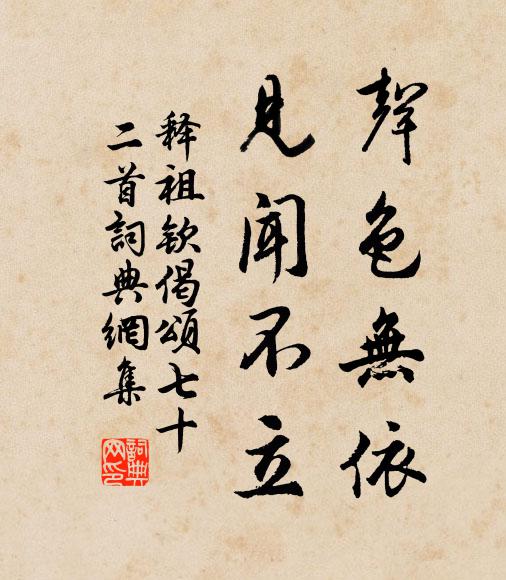 聲色無依
見聞不立
释祖欽偈頌七十
二首詞典網集
詞典网印